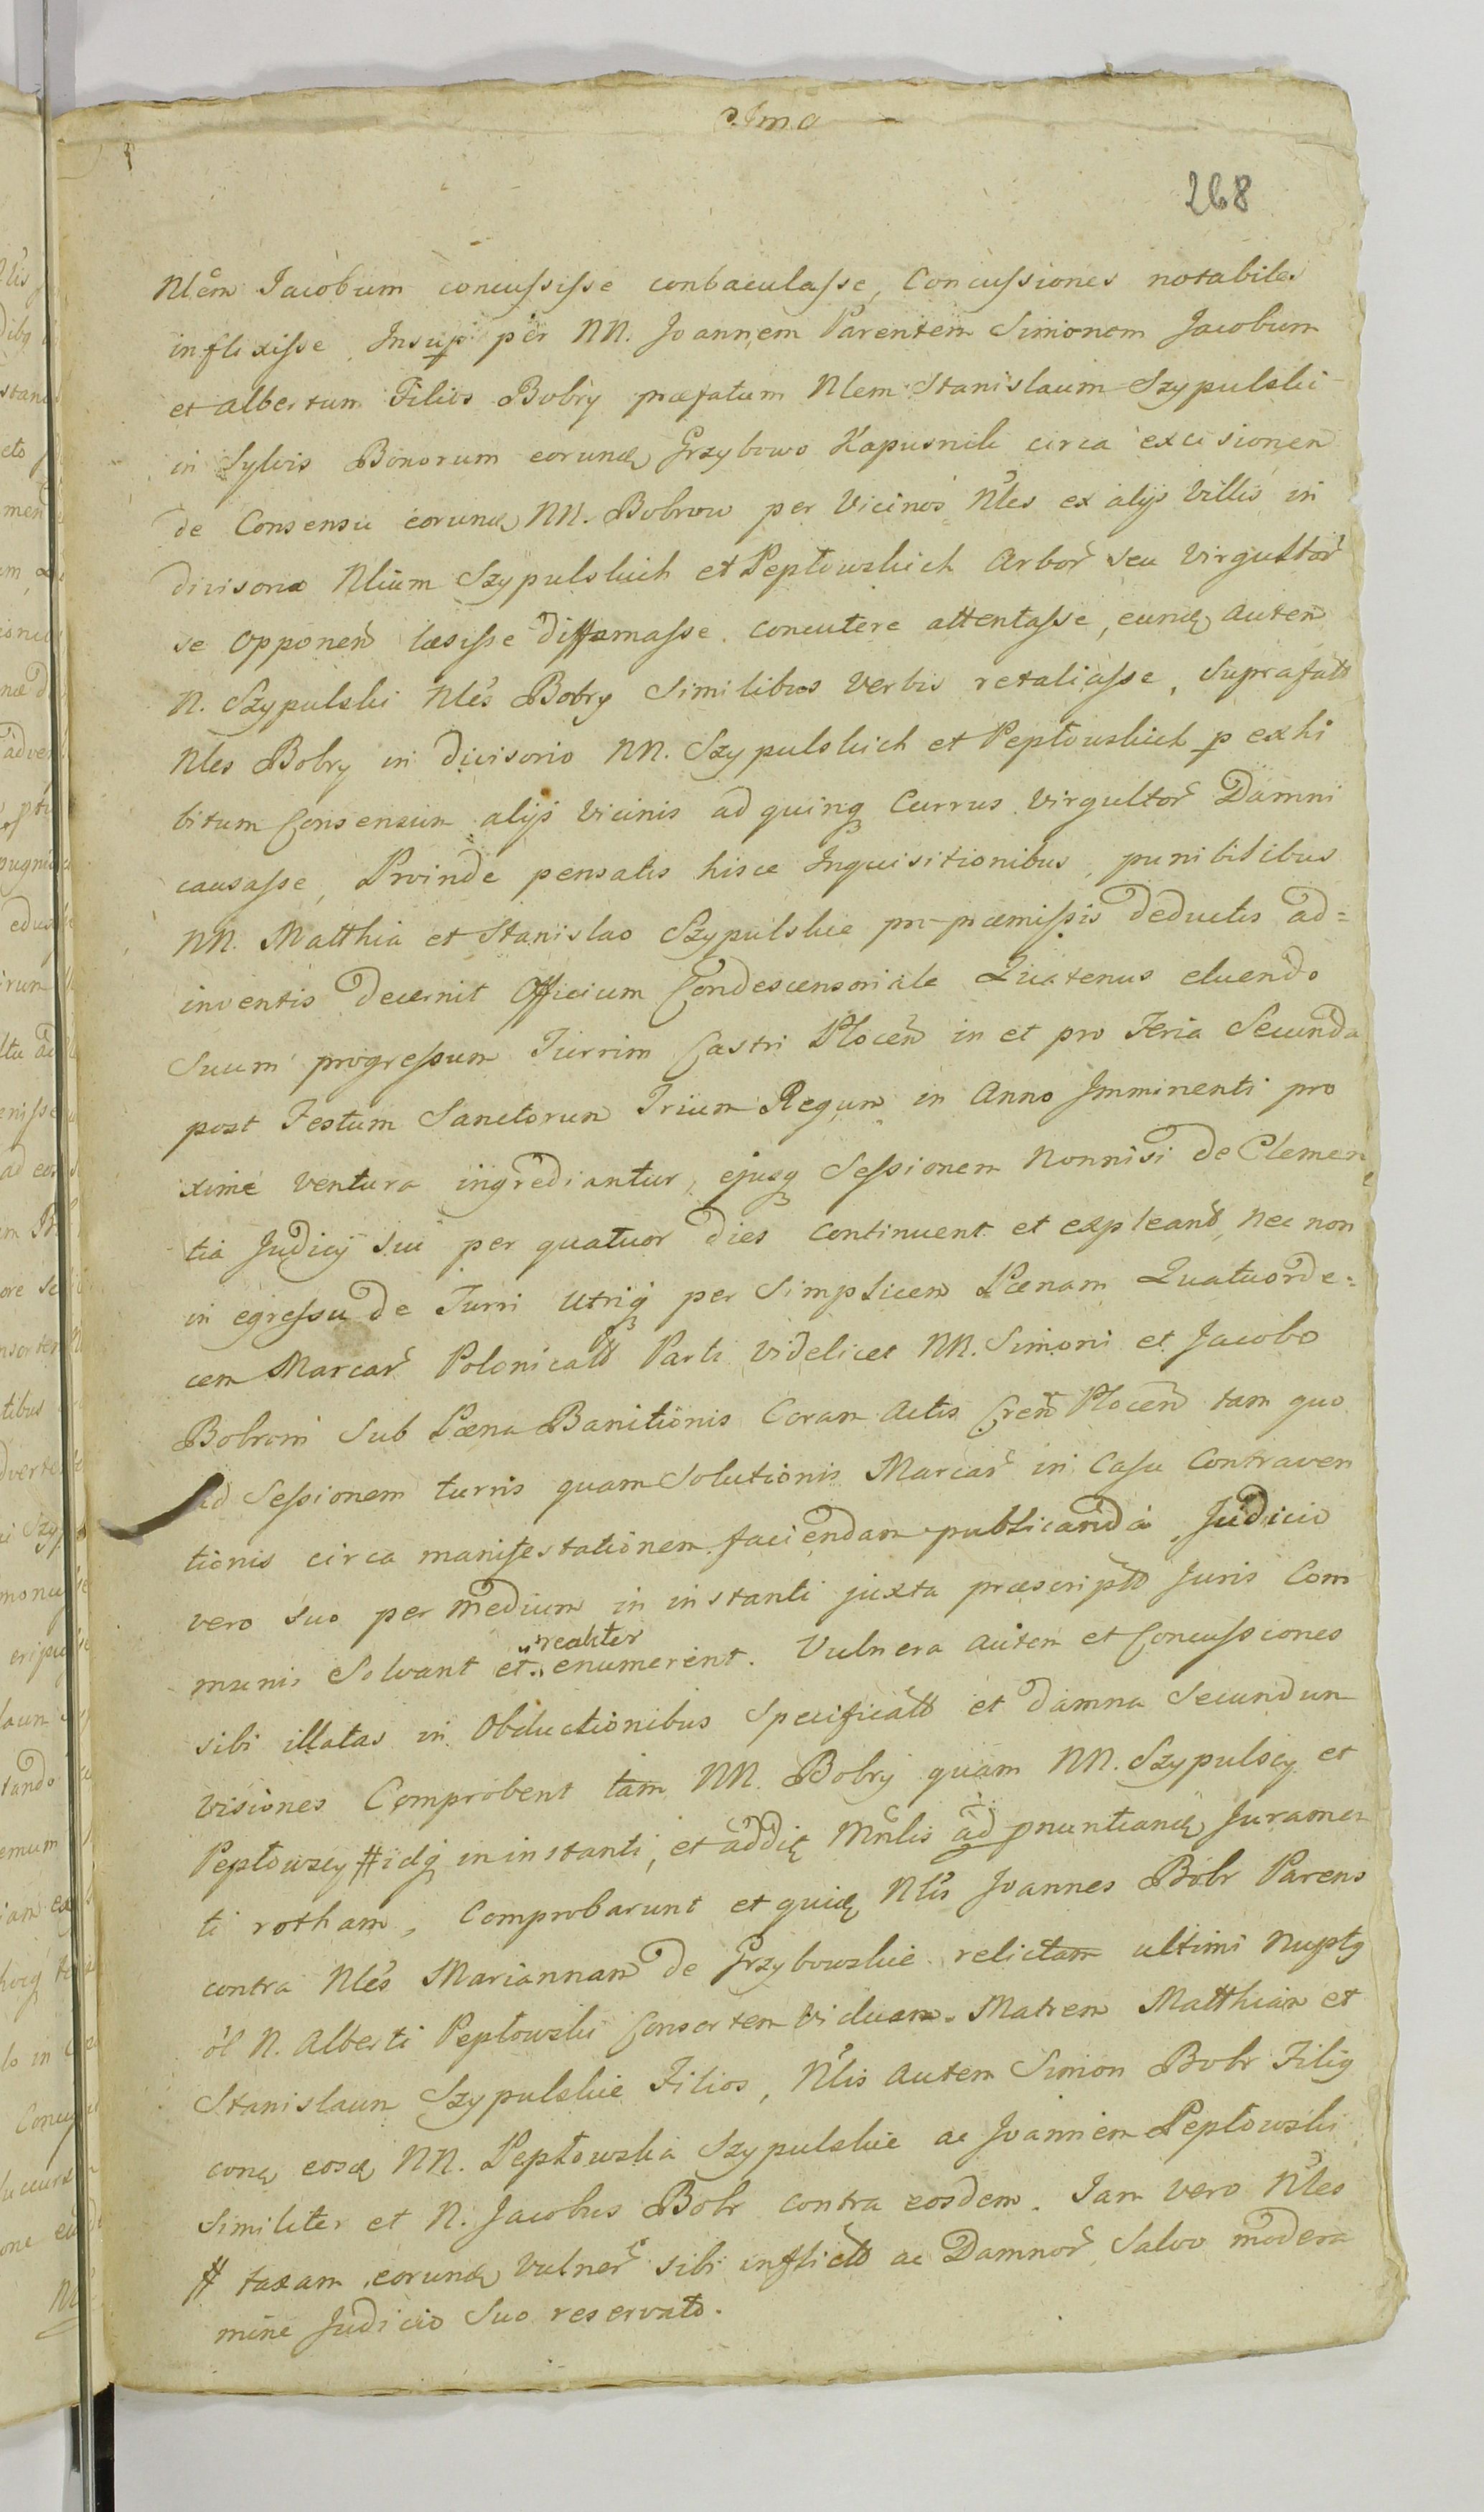 268
Nlem Jacobum concussisse conbaculasse, Concussiones notabiles
inflixisse, Insup per NN. Joannem Parentem Simionem Jacobum
et Albertum Filios Bobry præfatum Nlem Stanislaum Szypulski
in Sylvis Bonorum eorund Grzybowo Kapusnik circa excisionem
de Consensu eorund NN. Bobrow per Vicinos Nles ex alijs Villis in
divisorio Nlium Szypulskich et Pepłowskich Arbor seu Virgultor
se Opponen læsisse diffamasse concutere attentasse, eund autem
N. Szypulski Nles Bobry Similibus Verbis retaliasse, Suprafatt
Nles Bobry in divisorio NN. Szypulskich et Pepłowskich p exhi
bitum Consensum alijs Vicinis ad quinq Currus Virgultor Damni
causasse, Proinde pensatis hisce Inquisitionibus, punibilibus
NN. Matthia et Stanislao Szypulskie pr præmissis deductis ad=
inventis decernit Officium Condescensoriale Quatenus eluendo
Suum progressum Turrim Castri Plocen in et pro Feria Secunda
post Festum Sanctorum Trium Regum in Anno Imminenti pro
xime Ventura ingrediantur, ejusq Sessionem Nonnisi de Clemen
tia Judicij Sui per quatuor dies Continuent et expleant, nec non
in egressu de Turri Utriq per Simplicem Pœnam Quatuorde=
cem Marcar Polonicalt Parti videlicet NN. Simoni et Jacobo
Bobrom Sub Pœna Banitionis Coram Actis Cren Plocen tam quo
ad Sessionem turris quam Solutionis Marcar in Casu Contraven
tionis circa manifestationem faciendam publicanda Judicio
vero Suo per medium in instanti juxta præscript Juris Com
munis Solvant et realiter enumerent. Vulnera autem et Concussiones
sibi illatas in Obductionibus Specificatt et damna Secundum
Visiones Comprobent tam NN. Bobry quam NN. Szypulscy et
Pepłowscy # idq in instanti, et addit Mnlis ad pnuntiand Juramen
ti rotham, Comprobarunt et quid Nlis Joannes Bobr Parens
contra Nles Mariannam de Grzybowskie relictam ultimi Nuptq
ol N. Alberti Pepłowski Consortem Viduam Matrem Matthiam et
Stanislaum Szypulskie Filios, Nlis Autem Simon Bobr Filiq
cona eosd NN. Pepłowska Szypulskie ac Joannem Pepłowski
Similiter et N. Jacobus Bobr contra eosdem. Iam Vero Nles
# taxam eorund Vulner sibi inflict ac Damnor, Salvo modera
mine Judicio Suo reservato.